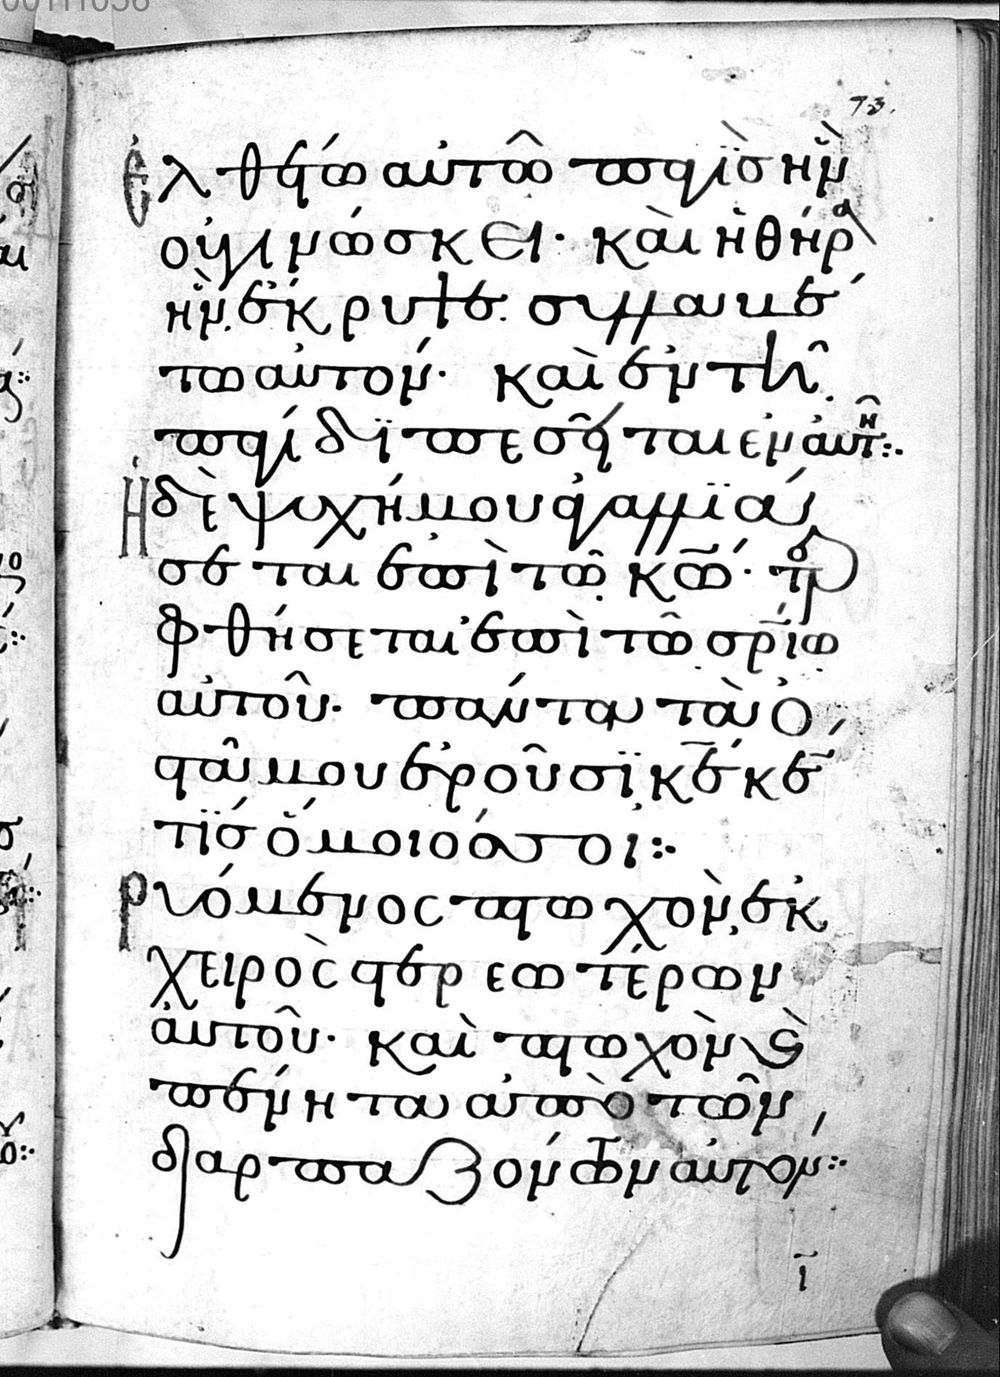 73.
Ἐλθέτω αὐτῶ παγῒς ἣν
οὐ γινώσκει· καὶ ἡ θήρα
ἣν ἔκρυψε. συλλαβέ
τω αὐτόν· καὶ ἐν τῆ
παγίδϊ πεσεῖται ἐν αὐτῆ:·
Ἡ δὲ ψυχή μου ἀγαλλϊά
σεται ἐπὶ τῶ κω̅· τερ
φθήσεται ἐπὶ τῶ σρ̅ίω
αὐτοῦ· πάντα τὰ ὀ
στᾶ μου ἐροῦσϊ κε̅ κε̅
τίς ὅμοιός σοι:·
Ρυόμενος πτωχὸν ἐκ
χειρὸς στερεωτέρων
αὐτοῦ· καὶ πτωχὸν καὶ
πένητα ἀπὸ τῶν
διαρπαζόντων αὐτόν:·
ι̅